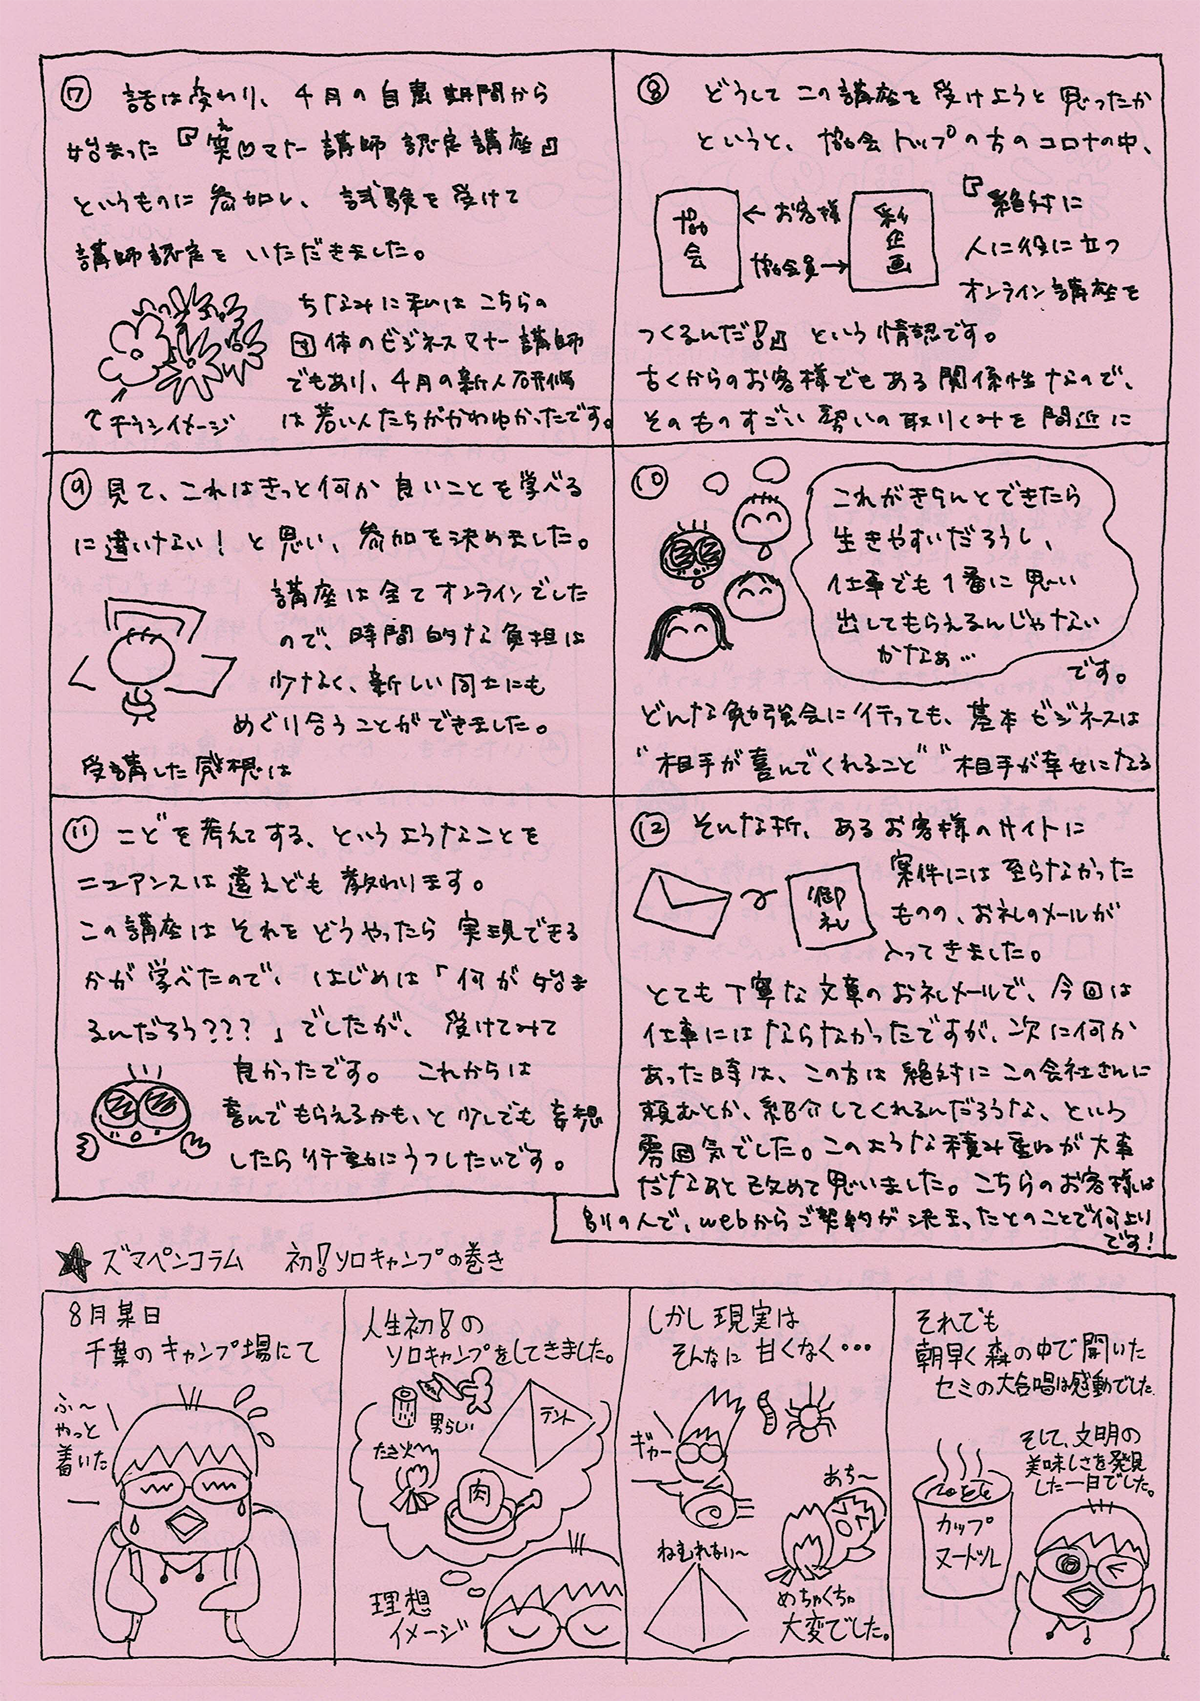 ⑦ 話は変わり、4月の自粛期間から
始まった『笑ロマナー講師認定講座』
というものに参加し、試験を受けて
講師認定をいただきました。
ちなみに私はこちらの
団体のビジネスマナー講師
でもあり、4月の新人研修
は若い人たちがかわゆかったです。
↖チラシイメージ
⑧ どうしてこの講座を受けようと思ったか
というと、協会トップの方のコロナの中、
協会
←お客様
協会員→
彩企画
『絶対に
人に役に立つ
オンライン講座を
つくるんだ!』という情認です。
古くからのお客様でもある関係性なので、
そのものすごい勢いの取りくみを間近に
⑨ 見て、これはきっと何か良いことを学べる
に違いない!と思い、参加を決めました。
講座は全てオンラインでした
ので、時間的な負担は
少なく、新しい同士にも
めぐり合うことができました。
受講した感想は
⑩
これがきちんとできたら
生きやすいだろうし、
仕事でも1番に思い
出してもらえるんじゃない
かなぁ…
です。
どんな勉強会に行っても、基本ビジネスは
"相手が喜んでくれること" "相手が幸せになる
⑪ こと"を考えてする、というようなことを
ニュアンスは違えども教わります。
この講座はそれをどうやったら実現できる
かが学べたので、はじめは「何が始ま
るんだろう???」でしたが、受けてみて
良かったです。これからは
喜んでもらえるかも、と少しでも妄想
したら行動にうつしたいです。
⑫ そんな折、あるお客様のサイトに
御礼
案件には至らなかった
ものの、お礼のメールが
入ってきました。
とても丁寧な文章のお礼メールで、今回は
仕事にはならなかったですが、次に何か
あった時は、この方は絶対にこの会社さんに
頼むとか、紹介してくれるんだろうな、という
雰囲気でした。このような積み重ねが大事
だなあと改めて思いました。こちらのお客様は
別の人で、webからご契約が決まったとのことで何より
です!
★ズマペンコラム 初!ソロキャンプの巻き
8月某日
千葉のキャンプ場にて
ふ〜
やっと
着いた
人生初!の
ソロキャンプをしてきました。
男らしい
テント
たき火
肉
理想
イメージ
しかし現実は
そんなに甘くなく・・・
ギャー
あち〜
ねむれない〜
めちゃくちゃ
大変でした。
それでも
朝早く森の中で聞いた
セミの大合唱は感動でした。
そして、文明の
美味しさを発見
した一日でした。
カップ
ヌードル